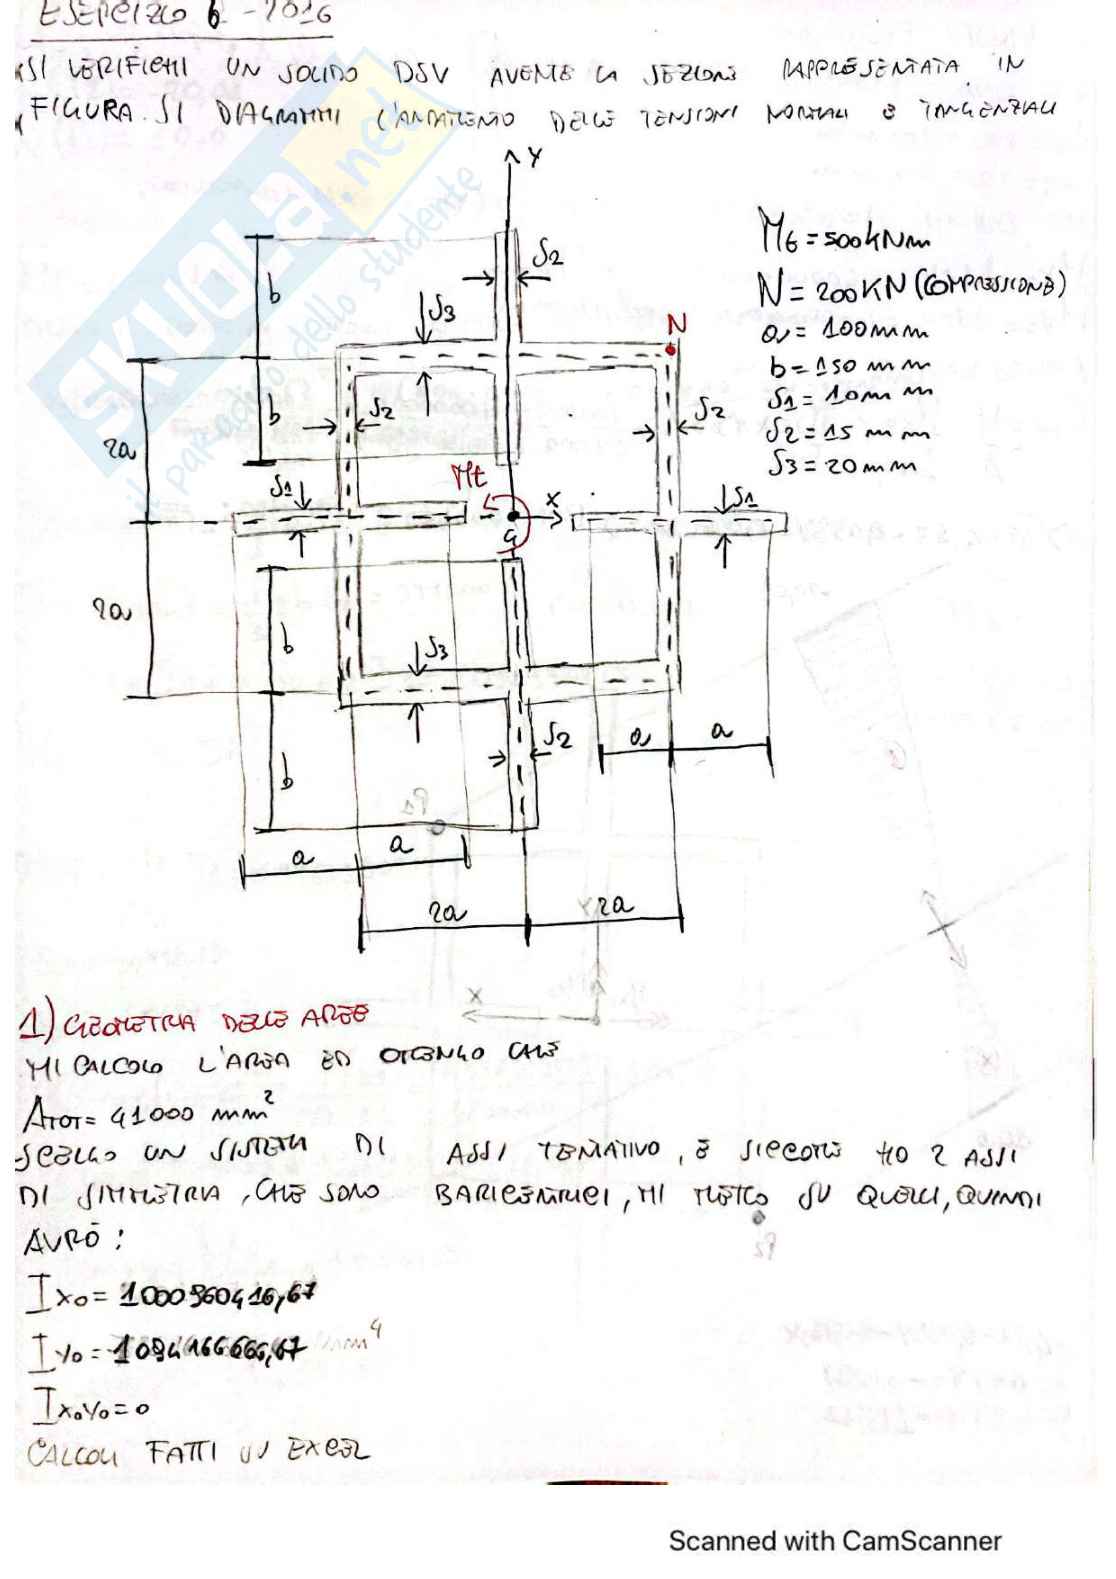 ESERCIZIO 6 - 2016
SI VERIFICHI UN SOLIDO DSV AVENTE LA SEZIONE RAPPRESENTATA IN
FIGURA. SI DIAGRAMMI L'ANDAMENTO DELLE TENSIONI NORMALI E TANGENZIALI
SKUOLA.net
il paradiso dello studente
Y
Mt = 500 kNm
N = 200 KN (COMPRESSIONE)
a = 100 mm
b = 150 mm
S1 = 10 mm
S2 = 15 mm
S3 = 20 mm
S2
b
S3
N
S2
S2
b
2a
Mt
S1
X
S1
G
2a
b
S3
S2
a
a
b
a
a
2a
2a
1) GEOMETRIA DELLE AREE
MI CALCOLO L'AREA ED OTTENGO CHE
ATOT = 41000 mm²
SCELGO UN SISTEMA DI ASSI TENTATIVO, E SICCOME HO 2 ASSI
DI SIMMETRIA, CHE SONO BARICENTRICI, MI METTO SU QUELLI, QUINDI
AVRÒ:
Ix₀ = 1000960416,67
Iy₀ = 1094166666,67 mm⁴
Ix₀y₀ = 0
CALCOLI FATTI SU EXCEL
Scanned with CamScanner